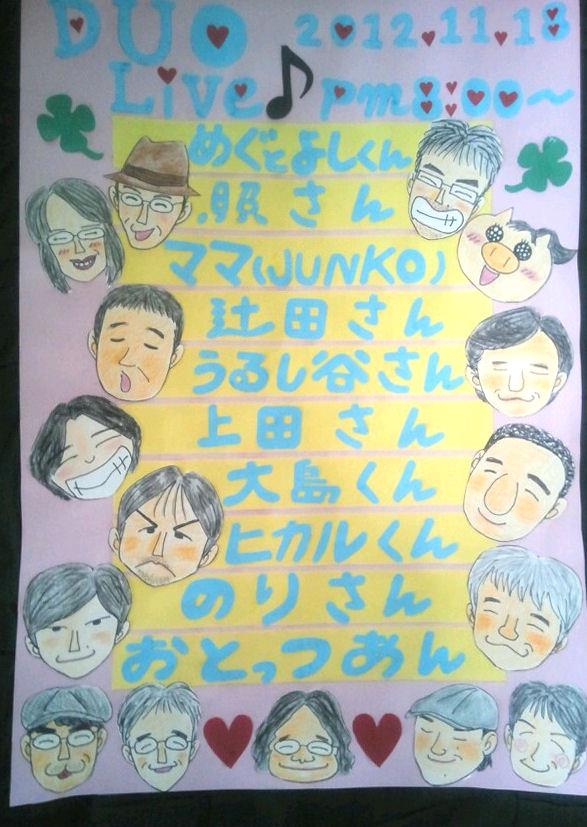 DUO 2012.11.18
Live♪pm8:00〜
めぐとよしくん
照さん
ママ(JUNKO)
辻田さん
うるし谷さん
上田さん
大島くん
ヒカルくん
のりさん
おとっつあん